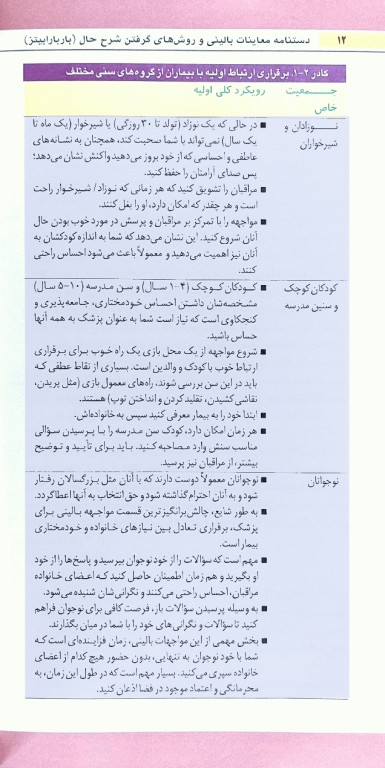 ۱۲ دستنامه معاینات بالینی و روش‌های گرفتن شرح حال (باربارابیتز)
کادر ۲-۱. برقراری ارتباط اولیه با بیماران از گروه‌های سنی مختلف
جـــمعیت خاص
رویکرد کلی اولیه
نـــوزادان و شیرخواران
■ در حالی که یک نوزاد (تولد تا ۳۰ روزگی) یا شیرخوار (یک ماه تا
یک سال) نمی‌تواند با شما صحبت کند، همچنان به نشانه‌های
عاطفی و احساسی که از خود بروز می‌دهید واکنش نشان می‌دهد؛
پس صدای آرامتان را حفظ کنید.
■ مراقبان را تشویق کنید که هر زمانی که نوزاد/ شیرخوار راحت
است و هر چقدر که امکان دارد، او را بغل کنند.
■ مواجهه را با تمرکز بر مراقبان و پرسش در مورد خوب بودن حال
آنان شروع کنید. این نشان می‌دهد که شما به اندازه کودکشان به
آنان نیز اهمیت می‌دهید و معمولاً باعث می‌شود احساس راحتی
کنند.
کودکان کوچک و سنین مدرسه
■ کـودکان کـوچک (۴-۱ سـال) و سـن مـدرسه (۱۰-۵ سال)
مشـخصه‌شان داشتن احساس خودمختاری، جامعه‌پذیری و
کنجکاوی است که نیاز است شما به عنوان پزشک به همه آنها
حساس باشید.
■ شروع مواجهه از یک محل بازی یک راه خـوب بـرای بـرقراری
ارتباط خوب با کودک و والدین است. بسیاری از نقاط عطفی که
باید در این سن بررسی شوند، راه‌های معمول بازی (مثل پریدن،
نقاشی کشیدن، تقلید کردن و انداختن توپ) هستند.
■ ابتدا خود را به بیمار معرفی کنید سپس به خانواده‌اش.
■ هر زمان امکان دارد، کودک سن مدرسه را بـا پـرسیدن سـؤالی
مناسب سنش وارد مصاحبه کنید. باید برای تأیید و توضیح
بیشتر، از مراقبان نیز پرسید.
نوجوانان
■ نوجوانان معمولاً دوست دارند که با آنان مثل بزرگسالان رفتار
شود و به آنان احترام گذاشته شود و حق انتخاب به آنها اعطا گردد.
■ به طور شایع، چالش‌برانگیزترین قسمت مواجهه بالینی برای
پزشک، برقراری تعادل بین نیازهای خانواده و خودمختاری
بیمار است.
■ مهم است که سؤالات را از خود نوجوان بپرسید و پاسخ‌ها را از خود
او بگیرید و هم زمان اطمینان حاصل کنید کـه اعـضای خـانواده
مراقبان، احساس راحتی می‌کنند و نگرانی‌شان شنیده می‌شود.
■ به وسیله پرسیدن سؤالات باز، فرصت کافی برای نوجوان فراهم
کنید تا سؤالات و نگرانی‌های خود را با شما در میان بگذارند.
■ بخش مهمی از این مواجهات بالینی، زمان فزاینده‌ای است کـه
شما با خود نوجوان به تنهایی، بدون حضور هیچ کدام از اعضای
خانواده سپری می‌کنید. بسیار مهم است که در طول این زمان، به
محرمانگی و اعتماد موجود در فضا اذعان کنید.